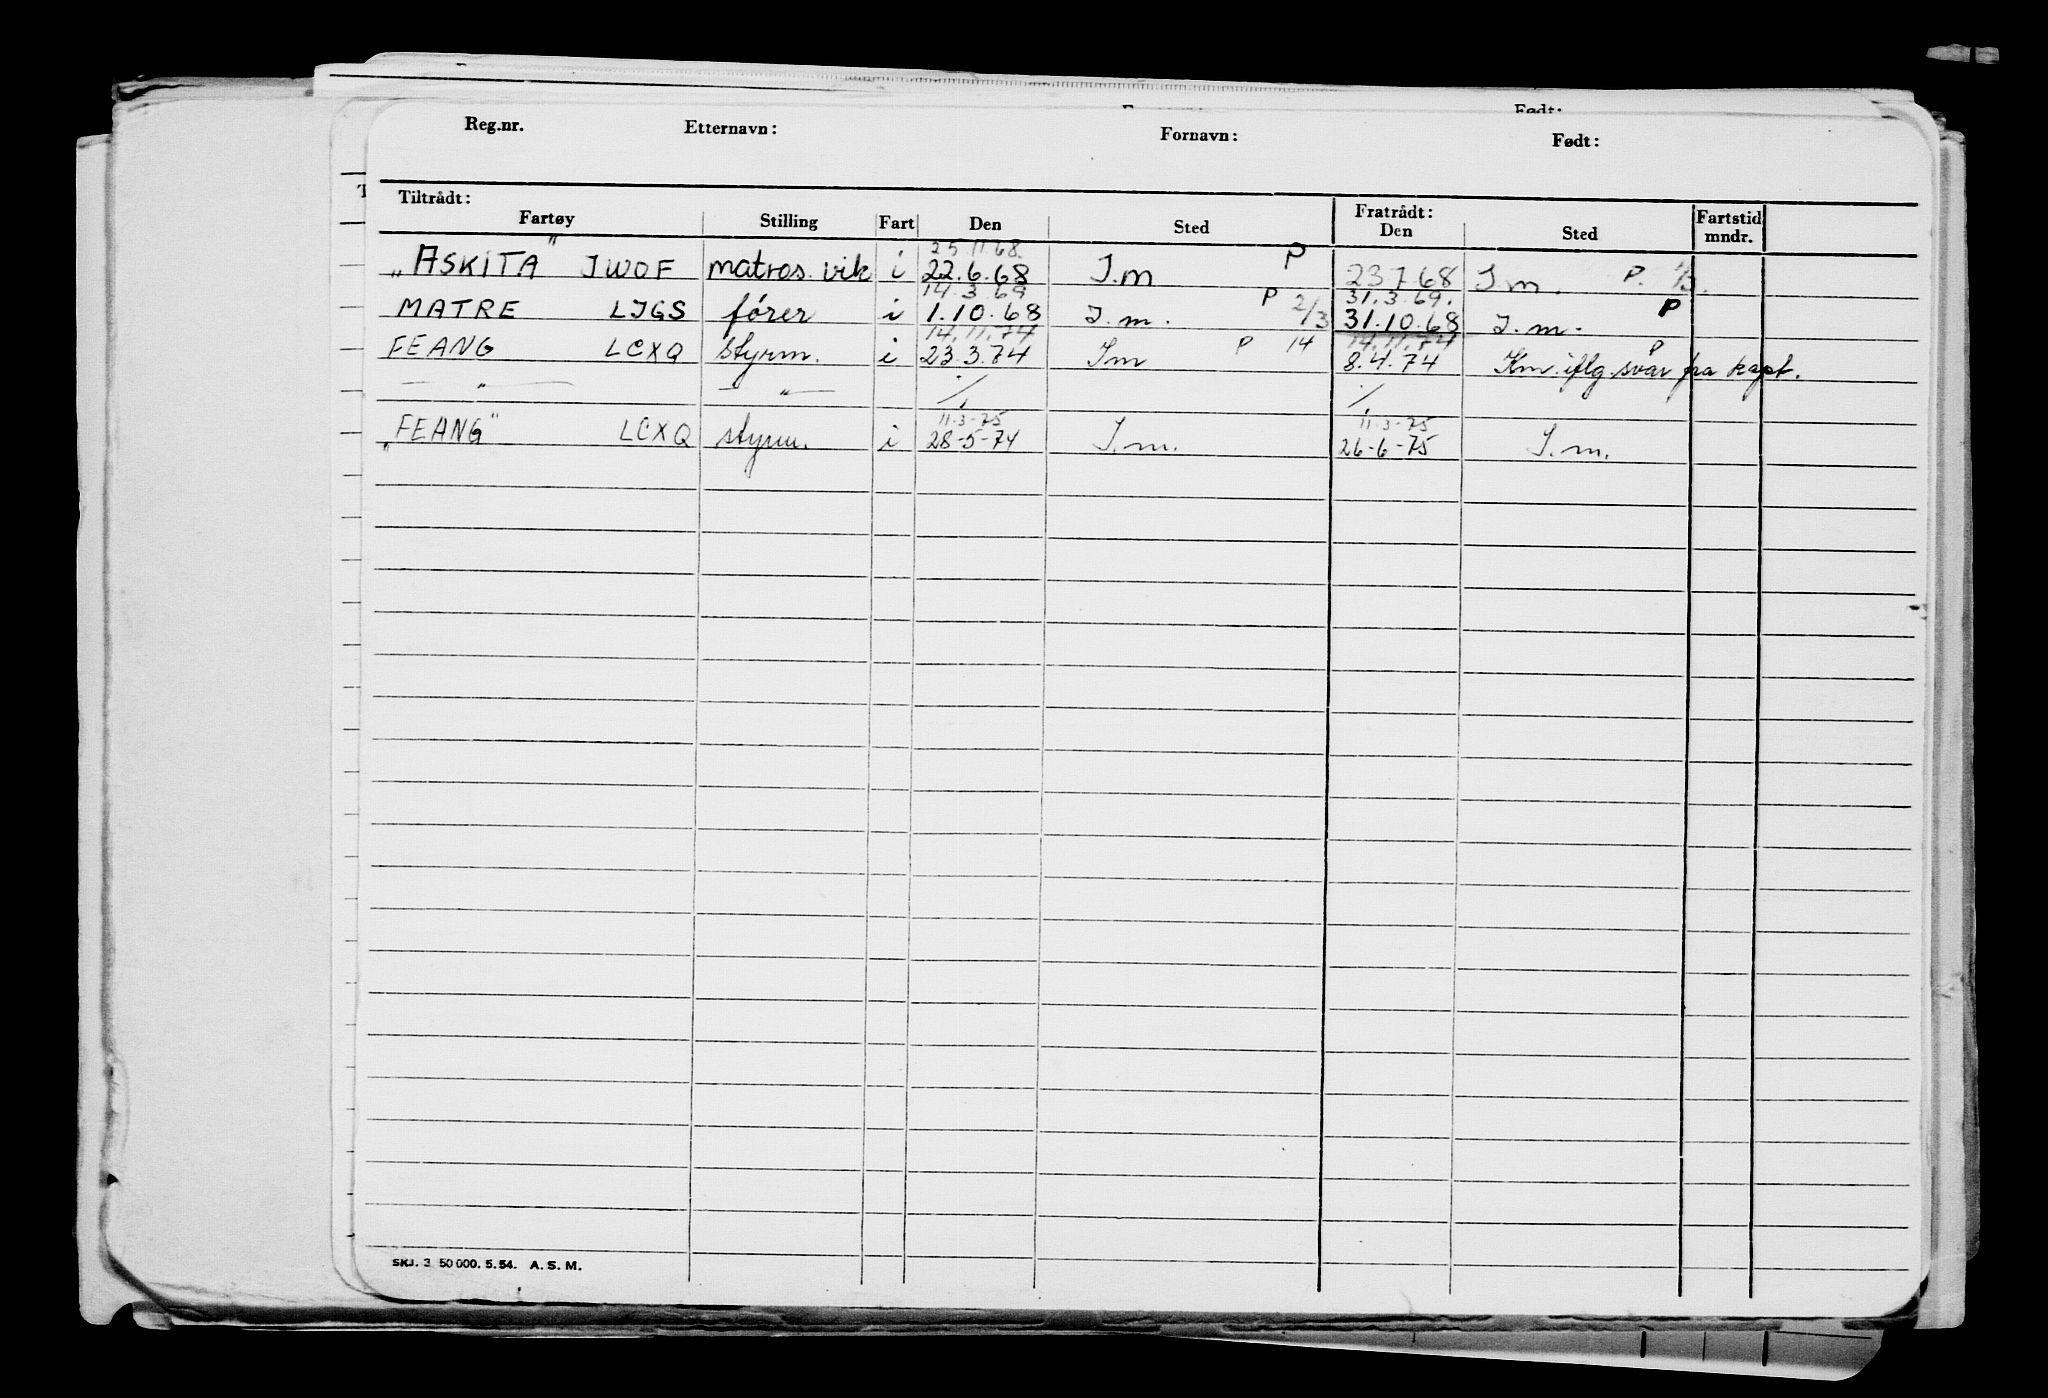 Født:
Reg.nr. Etternavn: Fornavn: Født:
Tiltrådt: Fratrådt:
Fartøy Stilling Fart Den Sted Den Sted Fartstid mndr.
25.11.68.
„ASKITA" JWOF matros. vik i 22.6.68 I.m P 23.7.68 I.m. P.
14.3.69 31.3.69.
MATRE LJGS fører i 1.10.68 I.m. P 2/3 31.10.68 I.m. P
14.11.74 14.11.74
FEANG LCXQ styrm. i 23.3.74 Im P 14 8.4.74 Km. iflg. svar fra kapt. P
— „ — — „ — ./. ./.
11-3-75 11-3-75
„FEANG" LCXQ styrm. i 28-5-74 I.m. 26-6-75 I.m.
SKJ. 3 50 000. 5. 54. A. S. M.